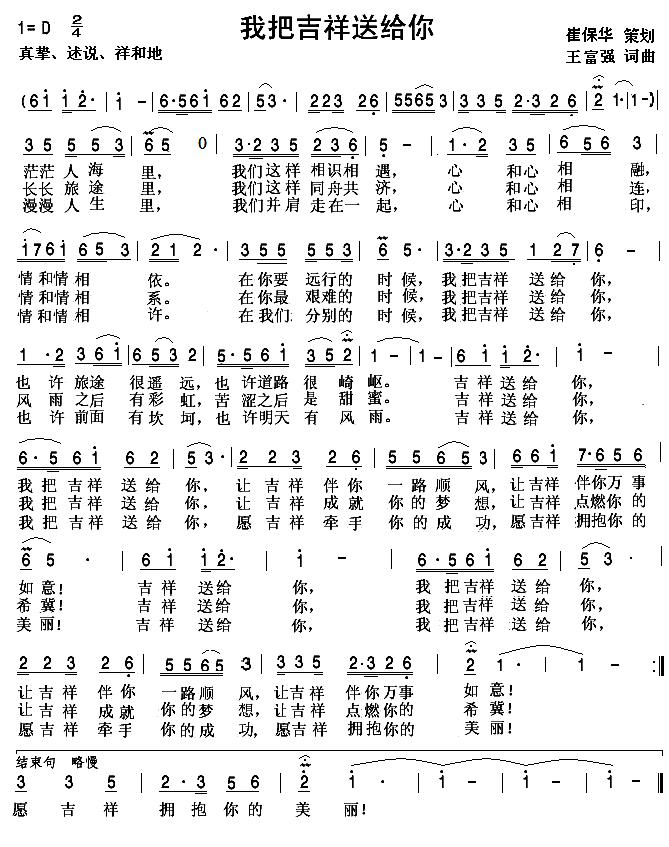 1=D 2/4
我把吉祥送给你
崔保华 策划
真挚、述说、祥和地
王富强 词曲
(61 12· | 6·561 62 | 53· | 223 26 | 5563 | 335 2·326 | 2 1· | 1-) |
35 553 | 65 0 | 3·235 236 | 5 - | 1·2 335 | 6 56 3 |
茫茫人海里，我们这样相识相遇，心和心相融，
长长旅途里，我们这样同舟共济，心和心相连，
漫漫人生里，我们并肩走在一起，心和心相印，
1761 653 | 21 2 | 355 355 | 6 5· | 3·235 127 | 6 - |
情和情相依。在你要远行的时候，我把吉祥送给你，
情和情相系。在你最艰难的时候，我把吉祥送给你，
情和情相许。在我们分别的时候，我把吉祥送给你，
1·2 361 | 6532 | 5·561 352 | 1 - | 1 - | 61 12· | 1 - |
也许旅途很遥远，也许道路很崎岖。吉祥送给你，
风雨之后有彩虹，苦涩之后是甜蜜。吉祥送给你，
也许前面有坎坷，也许明天有风雨。吉祥送给你，
6·561 62 | 53· | 223 26 | 5565 | 3 661 | 7·656 |
我把吉祥送给你，让吉祥伴你一路顺风，让吉祥伴你万事
我把吉祥送给你，让吉祥成就你的梦想，让吉祥点燃你的
我把吉祥送给你，愿吉祥牵手你的成功，愿吉祥拥抱你的
65· | 61 12· | 1 - | 6·561 62 | 53· |
如意！吉祥送给你，我把吉祥送给你，
希冀！吉祥送给你，我把吉祥送给你，
美丽！吉祥送给你，我把吉祥送给你，
223 26 | 5565 | 335 2·326 | 2 1· | 1 - :|
让吉祥伴你一路顺风，让吉祥伴你万事如意！
让吉祥成就你的梦想，让吉祥点燃你的希冀！
愿吉祥牵手你的成功，愿吉祥拥抱你的美丽！
结束句 略慢
3 35 | 2·3 56 | 2 1· | 1 - | 1 - | 1 - |
愿吉祥拥抱你的美丽！